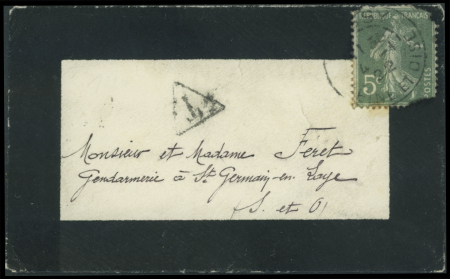 RÉPUBLIQUE FRANÇAISE
5c
POSTES
T
Monsieur et Madame Feret
Gendarmerie à St Germain-en-Laye
S. et O.